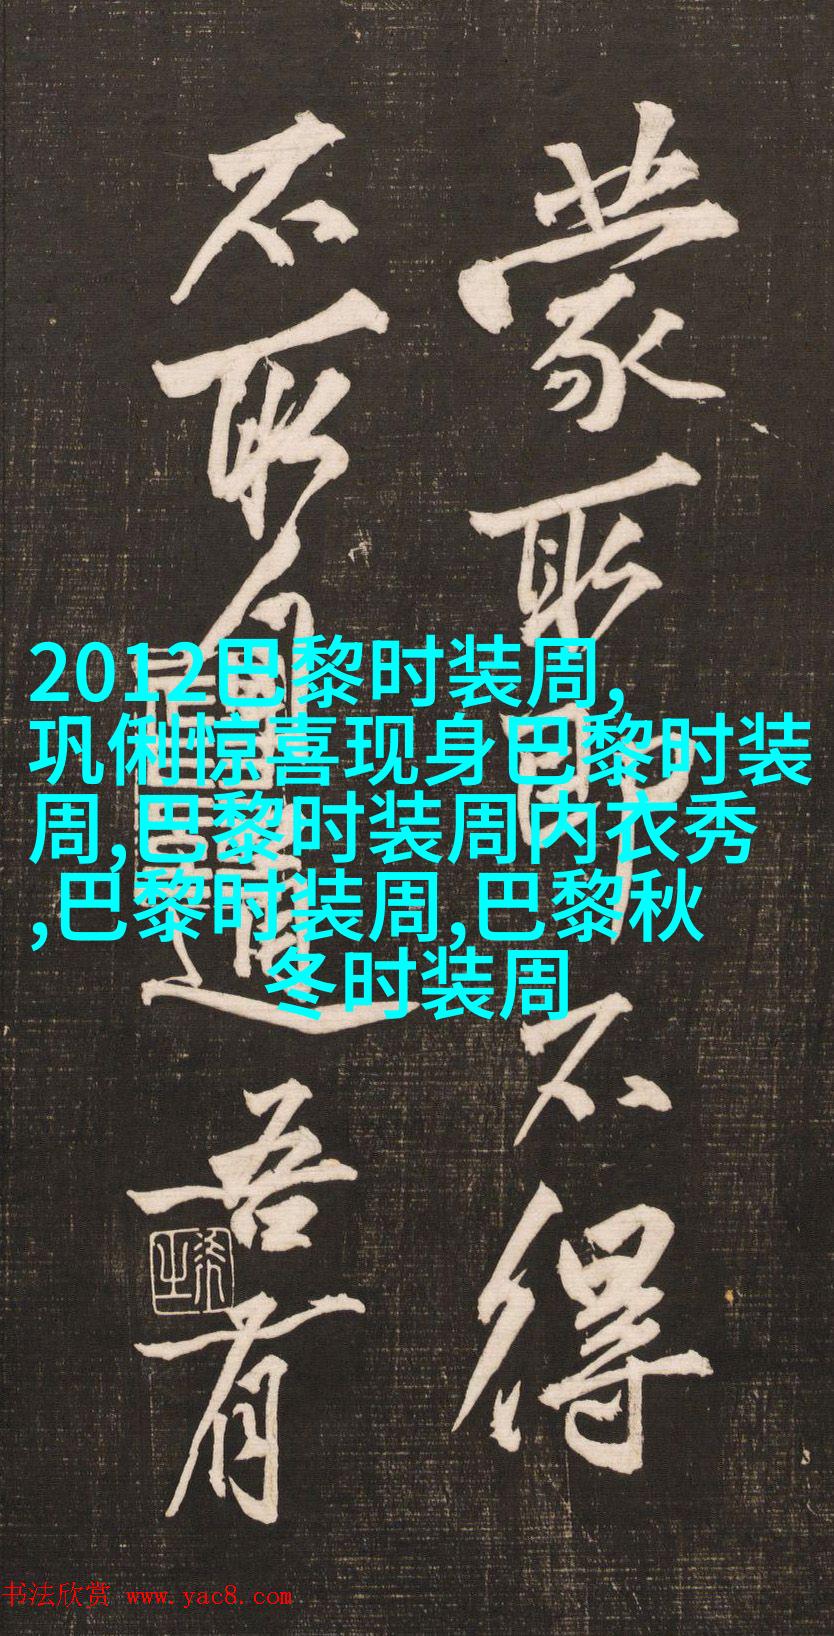 蒙恥部不得
不取有道吾
有
2012巴黎时装周,
巩俐惊喜现身巴黎时装
周,巴黎时装周内衣秀
,巴黎时装周,巴黎秋
冬时装周
书法欣赏 www.yac8.com